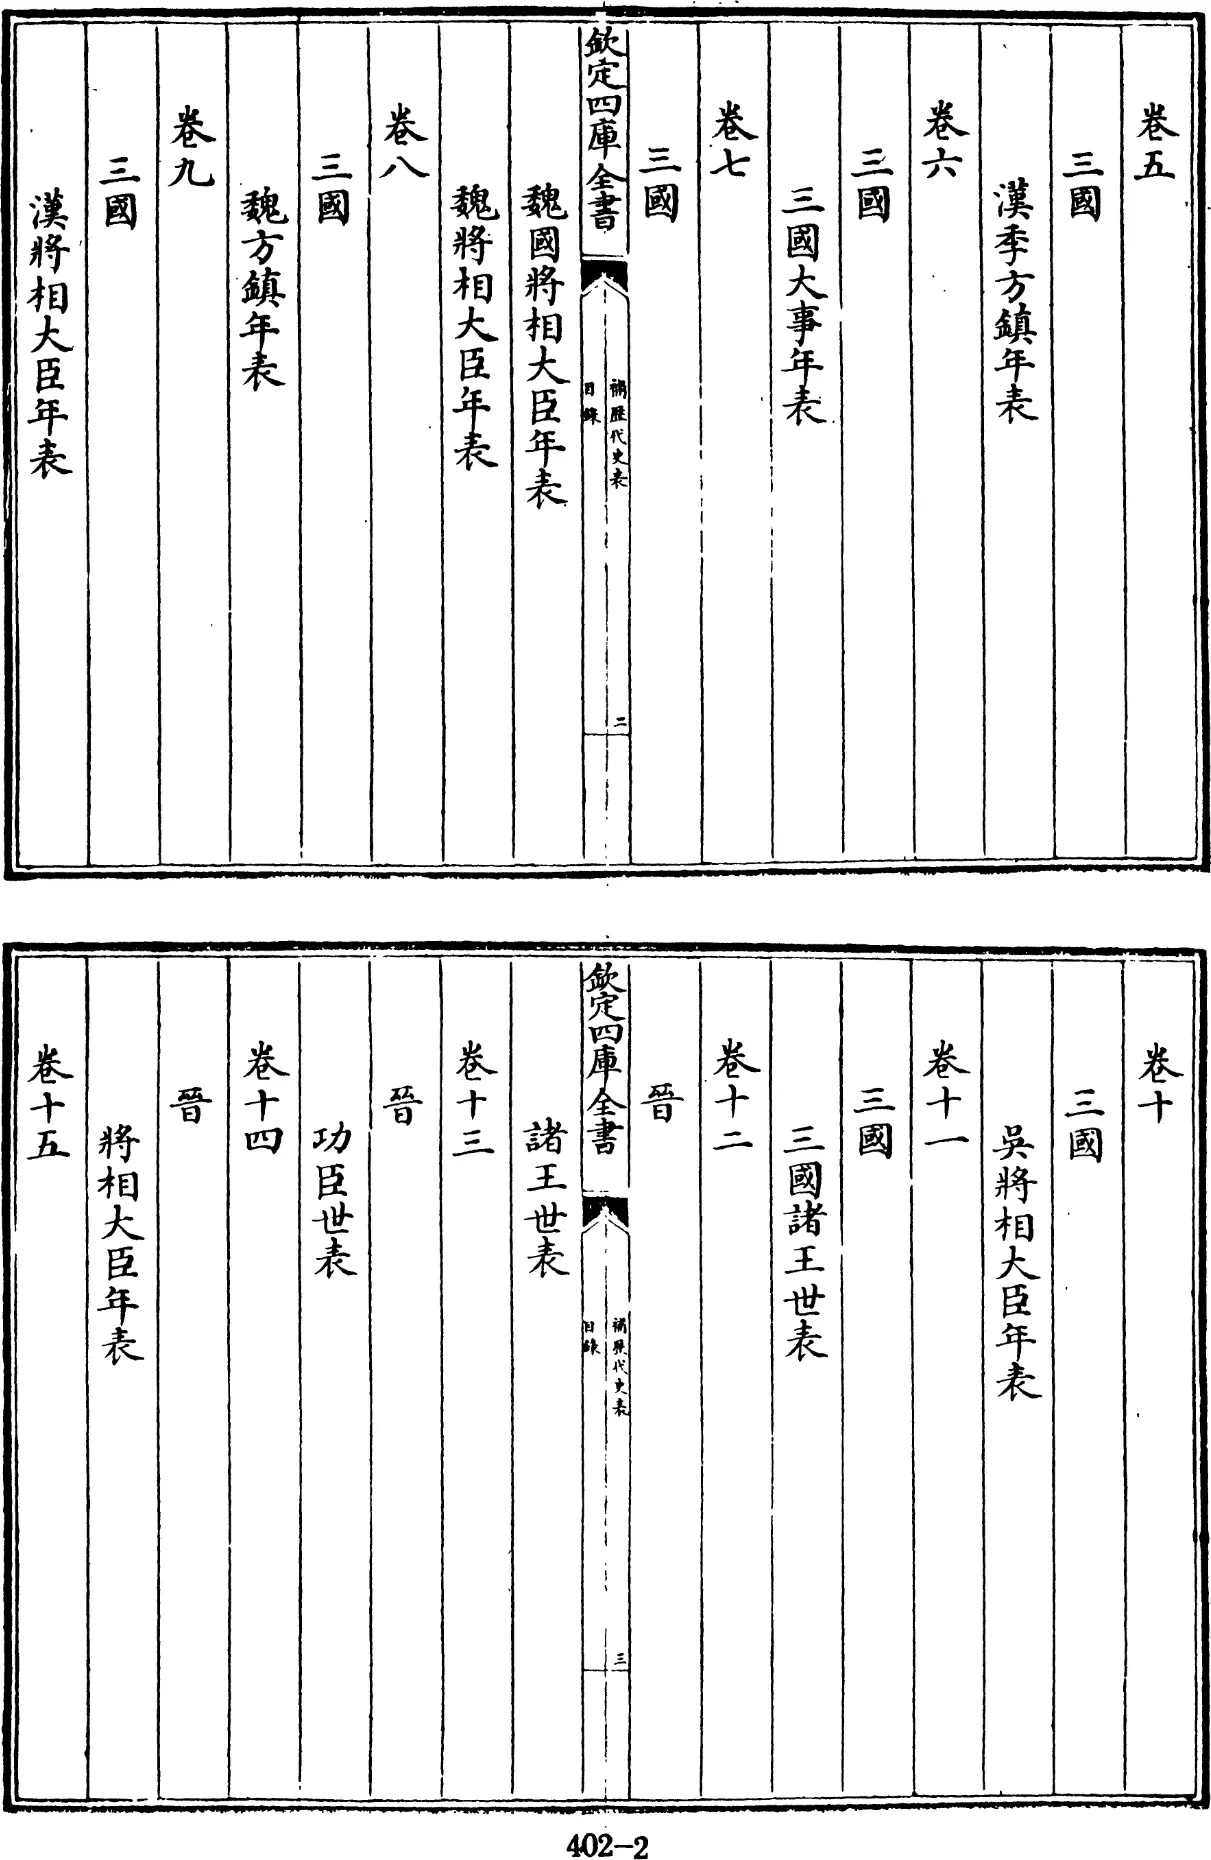 卷五
三國
漢季方鎮年表
卷六
三國
三國大事年表
卷七
三國
欽定四庫全書
補歷代史表
目錄
二
魏國將相大臣年表
魏將相大臣年表
卷八
三國
魏方鎮年表
卷九
三國
漢將相大臣年表
卷十
三國
吳將相大臣年表
卷十一
三國
三國諸王世表
卷十二
晉
欽定四庫全書
補歷代史表
目錄
三
諸王世表
卷十三
晉
功臣世表
卷十四
晉
將相大臣年表
卷十五
402-2